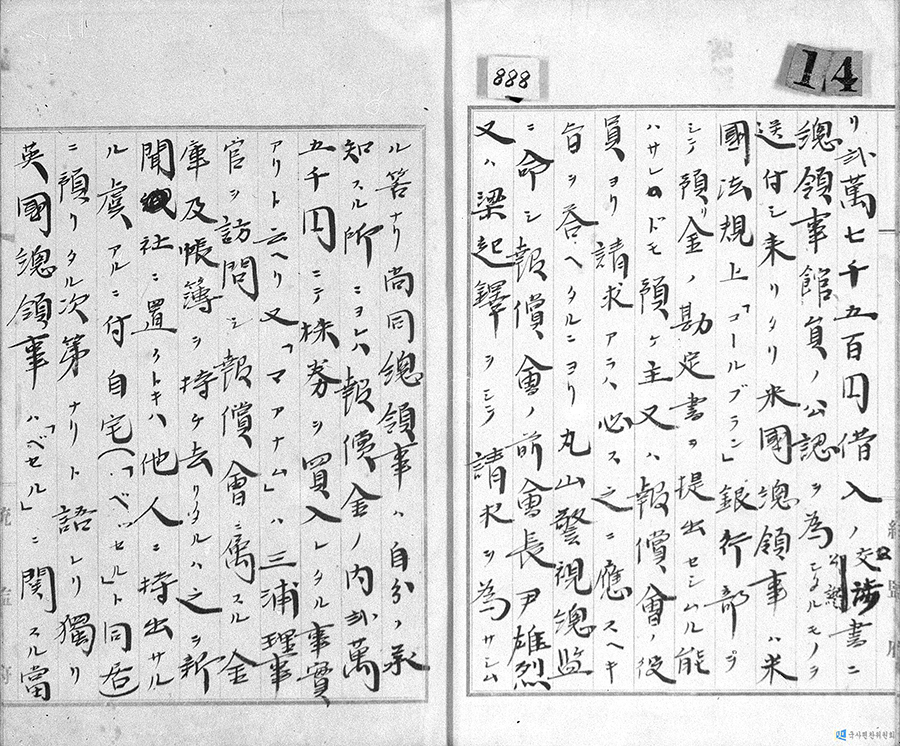 888
14
リ弐萬七千五百円借入ノ交渉書ニ
公認
總領事館員ノ公認ヲ為シタルモノヲ
送付シ来リタリ米國總領事ハ米
國法規上「コールブラン」銀行部ヲ
シテ預リ金ノ勘定書ヲ提出セシムル能
ハサレドモ預ケ主又ハ報償會ノ役
員ヨリ請求アラハ必ス之ニ應スヘキ
旨ヲ答ヘタルニヨリ丸山警視總監
ニ命シ報償會ノ前會長尹雄烈
又ハ梁起鐸ヲシテ請求ヲ為サシム
ル筈ナリ尚同總領事ハ自分ノ承
知スル所ニヨレハ報償金ノ内弐萬
五千円ニテ株券ヲ買入レタル事實
アリト云ヘリ又「マアナム」ハ三浦理事
官ヲ訪問シ報償會ニ属スル金
庫及帳簿ヲ持ケ去リタルハ之ヲ新
聞社ニ置クトキハ他人ニ持出サル
ル虞アルニ付自宅(「ベッセル」ト同居)
ニ預リタル次第ナリト語レリ獨リ
英國總領事ハ「ベセル」ニ関スル當
統監府
국사편찬위원회